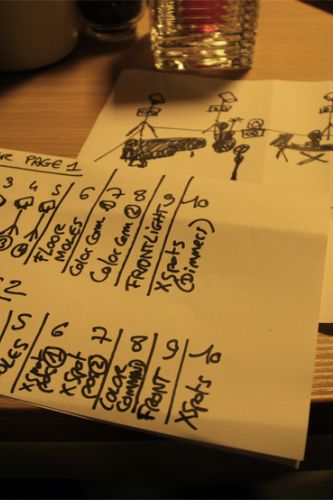 R PAGE 1
3 4 5 6 7 8 9 10
FLOOR MOLES
Color Com ①
Color Com ②
FRONTLIGHT
XSpots (Dimmers)
2
5 6 7 8 9 10
OLES
XSpot pos ①
XSpot pos ②
COLOR COMMAND
FRONT
XSpots